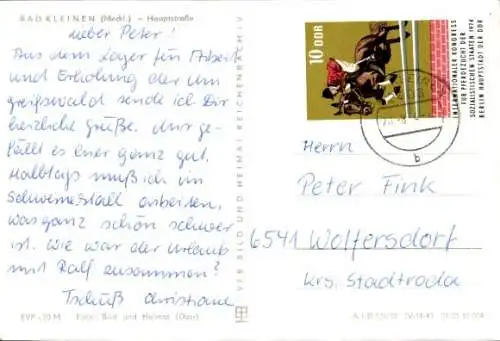 BAD KLEINEN (Meckl.) – Hauptstraße
Lieber Peter!
Aus dem Lager für Arbeit
und Erholung der Uni
Greifswald sende ich Dir
herzliche Grüße. Mir ge-
fällt es hier ganz gut.
Halbtags muß ich im
Schweinestall arbeiten,
was ganz schön schwer
ist. Wie war der Urlaub
mit Ralf zusammen?
Tschüß Christiane
EVP -,20 M Foto: Bild und Heimat (Darr)
VEB BILD UND HEIMAT REICHENBACH i. V.
10 DDR
INTERNATIONALER KONGRESS
FÜR PFERDEZUCHT DER
SOZIALISTISCHEN STAATEN 1974
BERLIN HAUPTSTADT DER DDR
b
Herrn
Peter Fink
6541 Wolfersdorf
Krs. Stadtroda